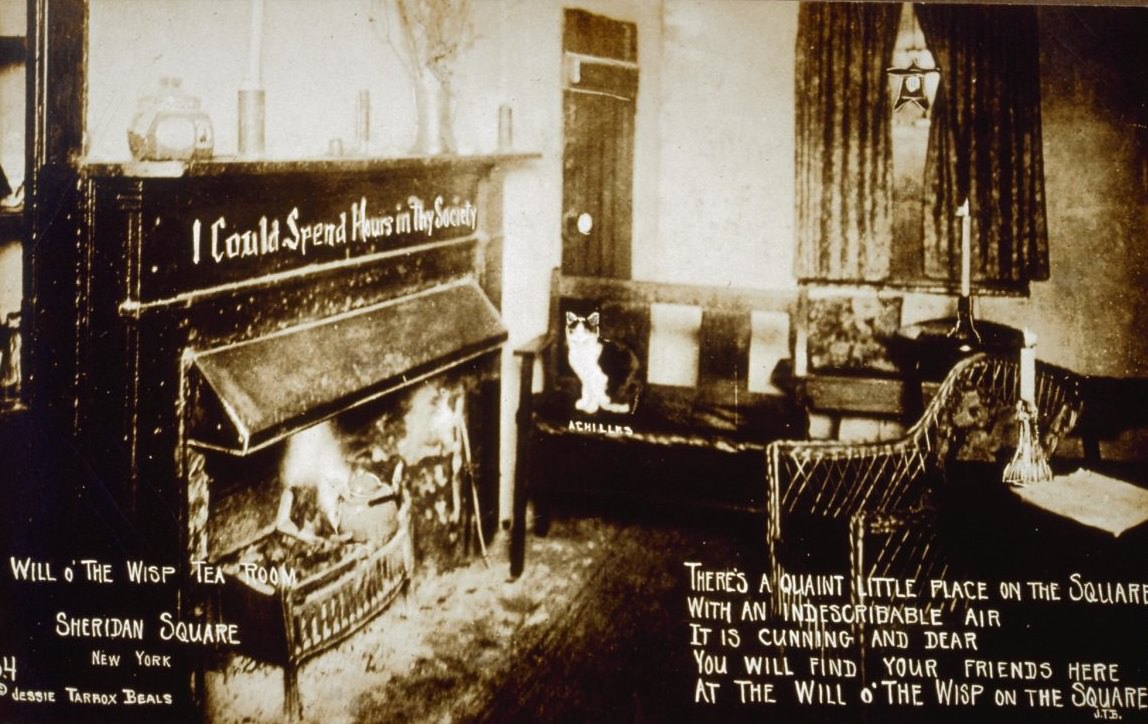 I Could Spend Hours in Thy Society
ACHILLES
WILL O' THE WISP TEA ROOM
SHERIDAN SQUARE
NEW YORK
© JESSIE TARBOX BEALS
THERE'S A QUAINT LITTLE PLACE ON THE SQUARE
WITH AN INDESCRIBABLE AIR
IT IS CUNNING AND DEAR
YOU WILL FIND YOUR FRIENDS HERE
AT THE WILL O' THE WISP ON THE SQUARE
J.T.B.